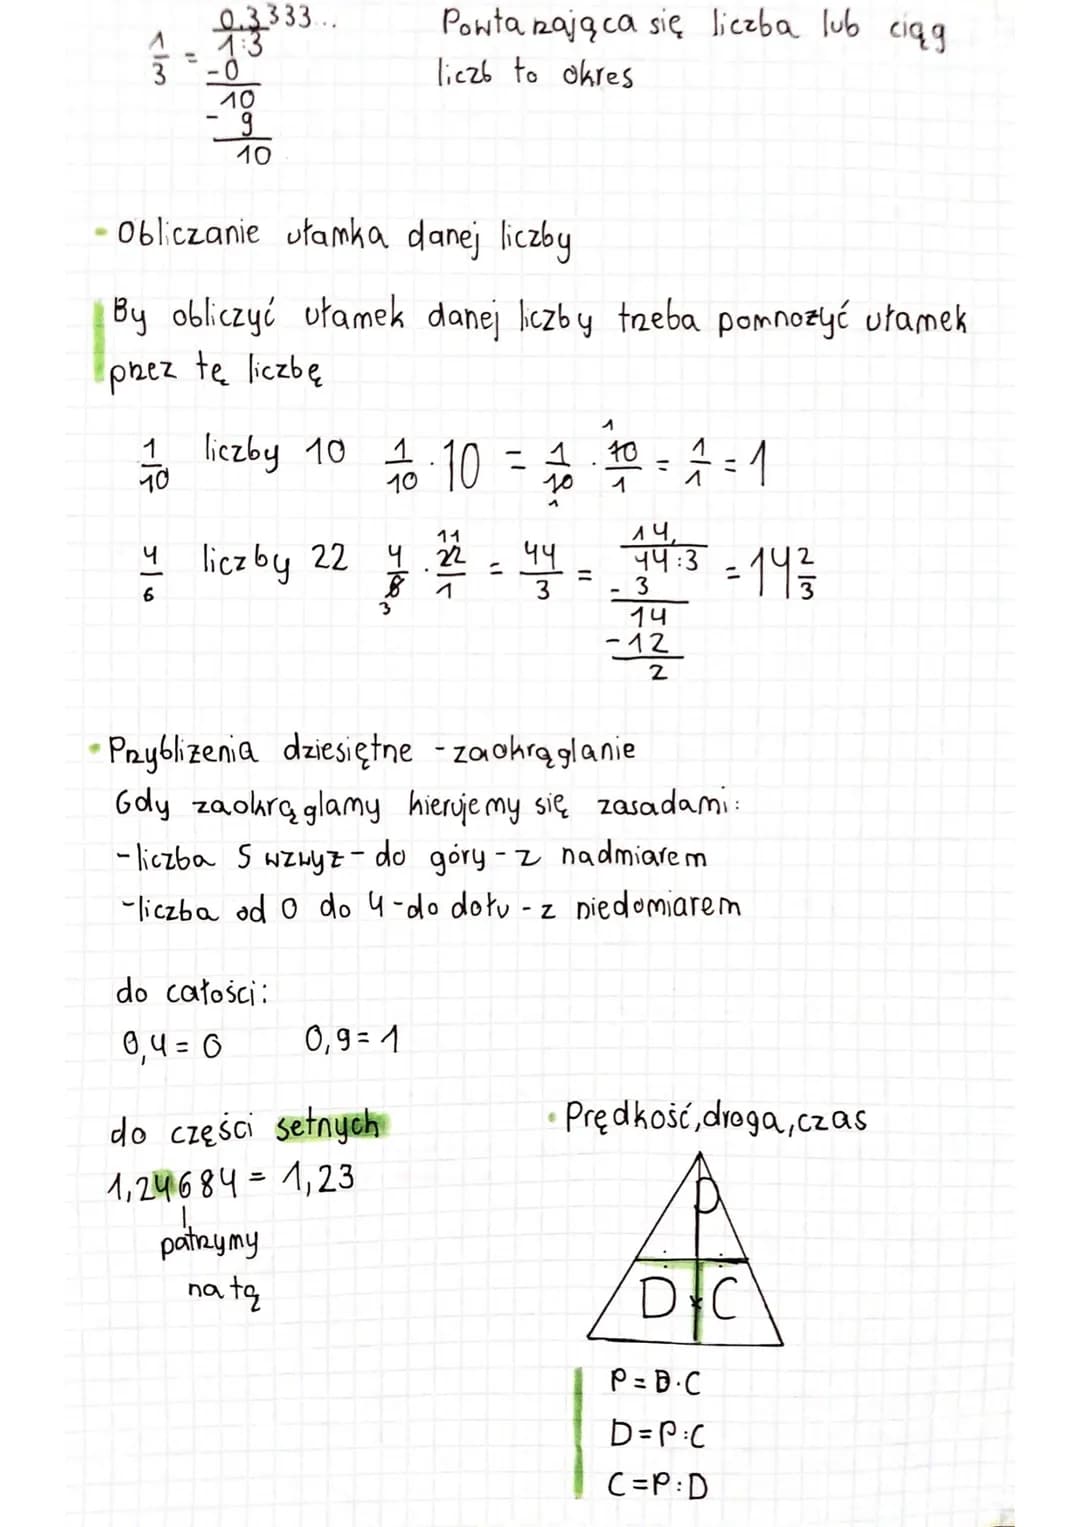 1/3 = 0.3333...
1:3
-0
10
- 9
10
Powtarzająca się liczba lub ciąg
liczb to okres
- Obliczanie ułamka danej liczby
By obliczyć ułamek danej liczby trzeba pomnożyć ułamek
przez tę liczbę
1/10 liczby 10 1/10 · 10 = 1/10 · 10/1 = 1/1 = 1
4/6 liczby 22 4/6 · 22/1 = 44/3 = 44:3 = 14 2/3
14,
- 3
14
-12
2
• Przybliżenia dziesiętne - zaokrąglanie
Gdy zaokrąglamy kierujemy się zasadami:
- liczba 5 wzwyż - do góry - z nadmiarem
- liczba od 0 do 4 - do dołu - z niedomiarem
do całości:
0,4 = 0 0,9 = 1
do części setnych
1,24684 = 1,23
patrzymy
na tą
• Prędkość, droga, czas
P
D × C
P = D·C
D = P:C
C = P:D